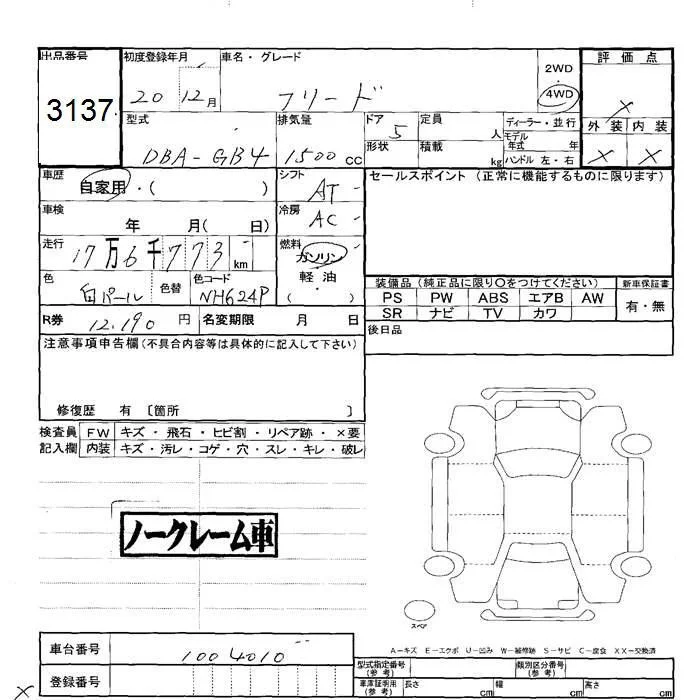 出品番号 初度登録年月 車名・グレード 2WD 評価点
3137 20 12月 フリード 4WD ×
型式 排気量 ドア 定員 ディーラー・並行 外装 内装
DBA-GB4 1500cc 5 人 モデル年式 年 × ×
形状 積載 kg ハンドル 左・右
車歴 自家用・( ) シフト AT セールスポイント (正常に機能するものに限ります)
車検 年 月( 日) 冷房 AC
走行 17万6千773km 燃料 ガソリン
軽油
色 白パール 色替 色コード NH624P ( ) 装備品 (純正品に限り〇をつけてください) 新車保証書
PS PW ABS エアB AW 有・無
R券 12,190円 名変期限 月 日 SR ナビ TV カワ
注意事項申告欄(不具合内容等は具体的に記入して下さい) 後日品
修復歴 有 〔箇所 〕
検査員 FW キズ・飛石・ヒビ割・リペア跡・×要
記入欄 内装 キズ・汚レ・コゲ・穴・スレ・キレ・破レ
ノークレーム車
スペア
A-キズ E-エクボ U-凹み W-補修跡 S-サビ C-腐食 XX-交換済
車台番号 1004010 型式指定番号(参考) 類別区分番号(参考)
登録番号 車庫証明用(参考) 長さ cm 幅 cm 高さ cm
×